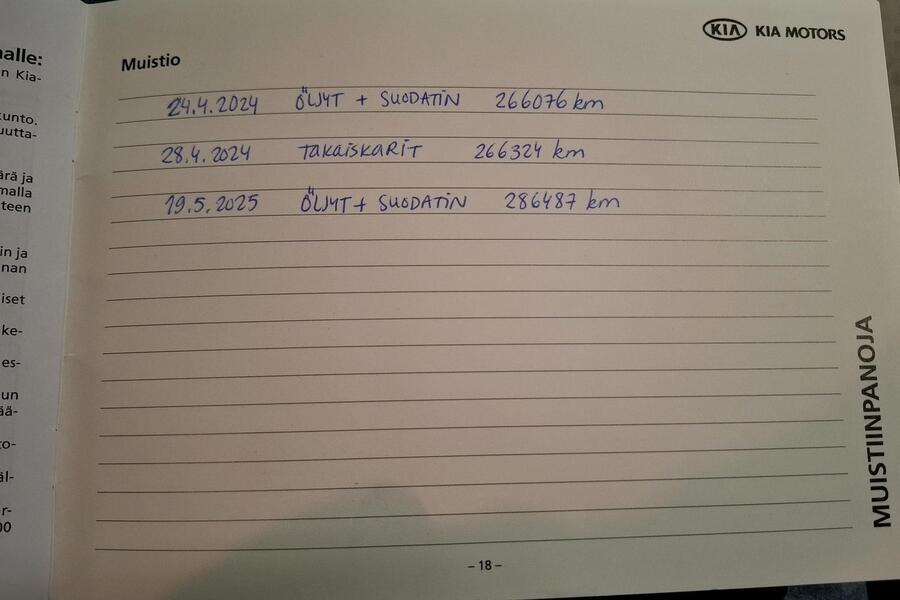 KIA KIA MOTORS
Muistio
24.4.2024 ÖLJYT + SUODATIN 266076 km
28.4.2024 TAKAISKARIT 266324 km
19.5.2025 ÖLJYT + SUODATIN 286487 km
MUISTIINPANOJA
- 18 -
alle:
n Kia-
kunto.
uutta-
ärä ja
malla
teen
in ja
nan
iset
ke-
es-
un
ää-
to-
äl-
r-
00